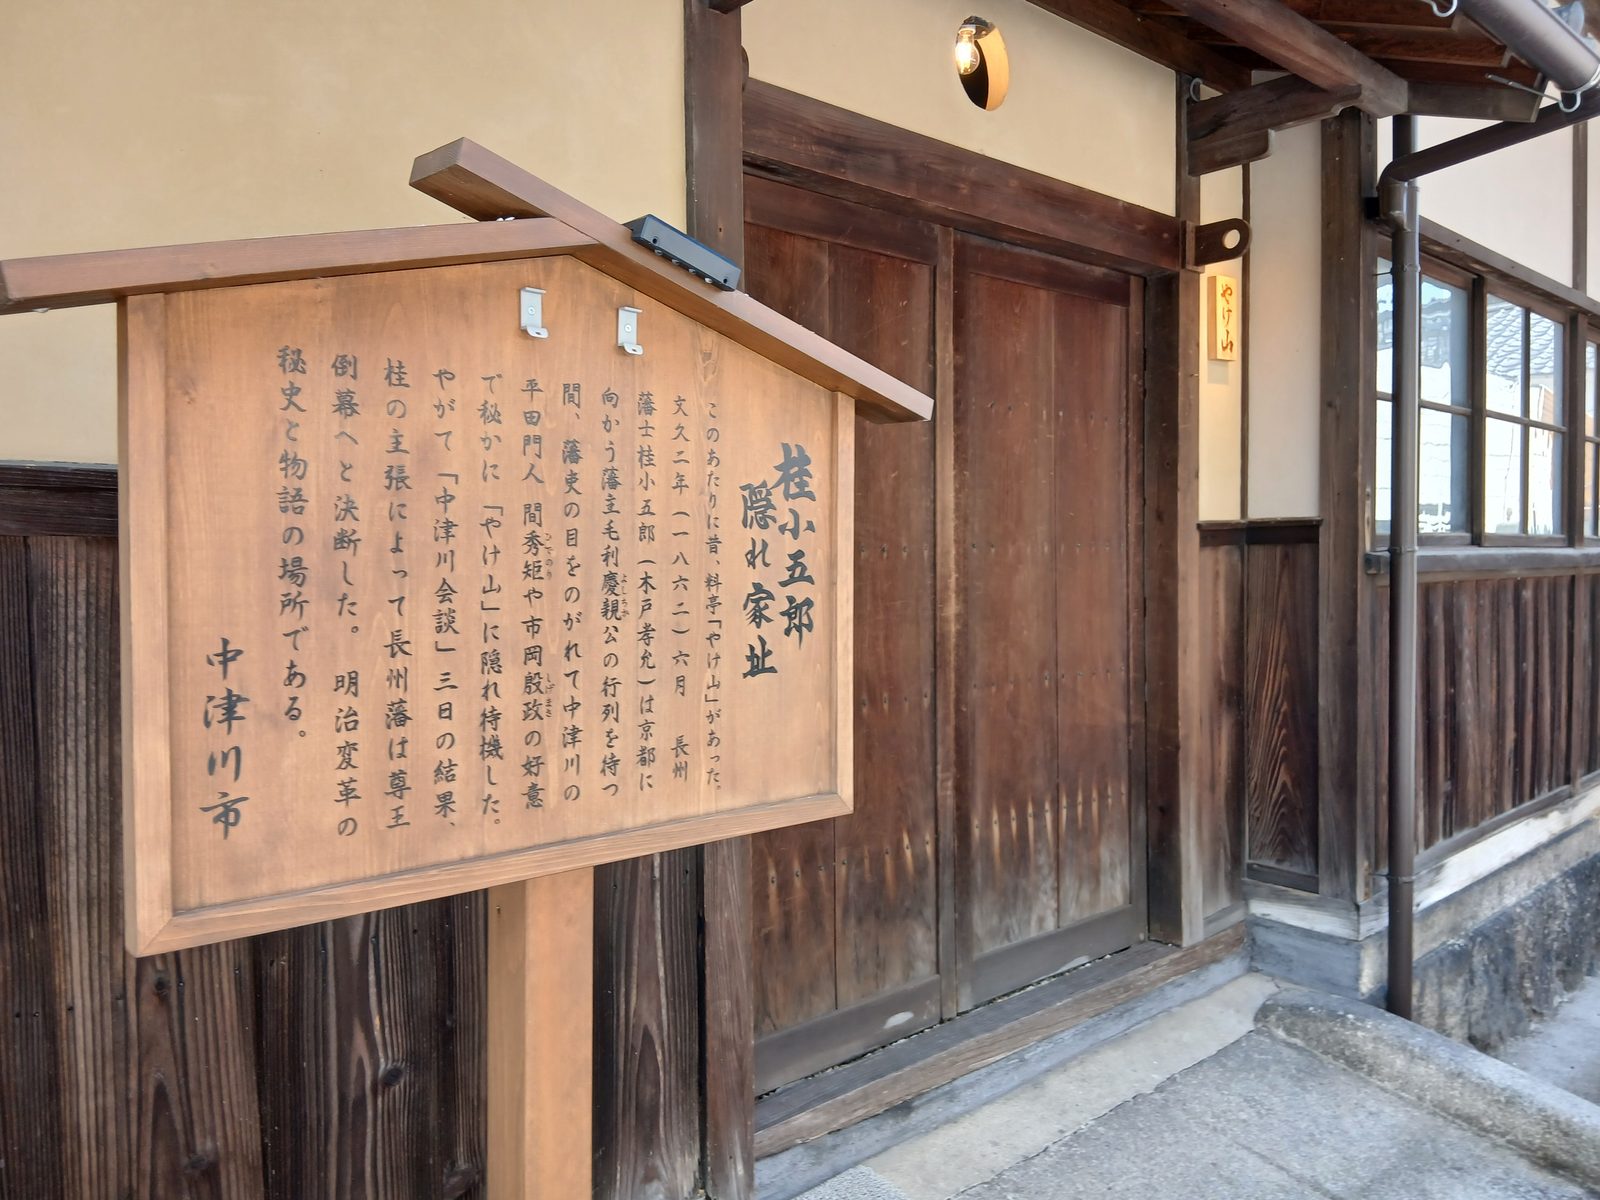 桂小五郎
隠れ家址
このあたりに昔、料亭「やけ山」があった。
文久二年(一八六二)六月 長州
藩士桂小五郎(木戸孝允)は京都に
向かう藩主毛利慶親公の行列を待つ
よしちか
間、藩吏の目をのがれて中津川の
平田門人 間秀矩や市岡殷政の好意
ひでのり
しげまさ
で秘かに「やけ山」に隠れ待機した。
やがて「中津川会談」三日の結果、
桂の主張によって長州藩は尊王
倒幕へと決断した。 明治変革の
秘史と物語の場所である。
中津川市
やけ山